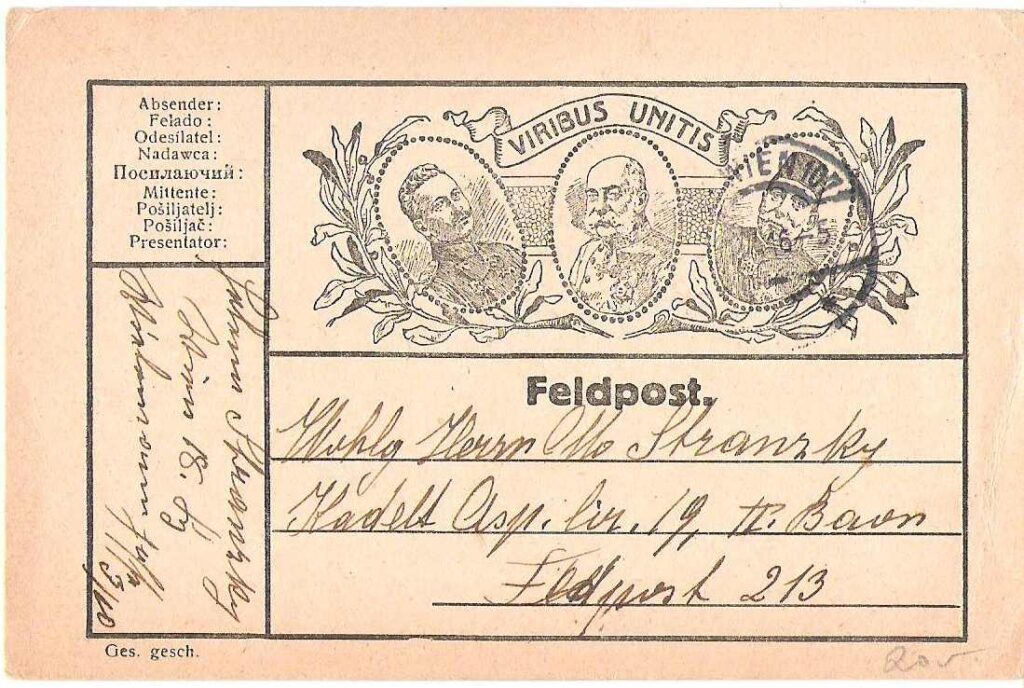 Absender:
Felado:
Odesílatel:
Nadawca:
Посилаючий:
Mittente:
Pošiljatelj:
Pošiljač:
Presentator:
VIRIBUS UNITIS
WIEN 107
Feldpost.
Wohlg Herrn Otto Stranzky
Kadett Asp. 19, II. Baon
Feldpost 213
Stranzky
Wien 18.
3/10
Ges. gesch.
20